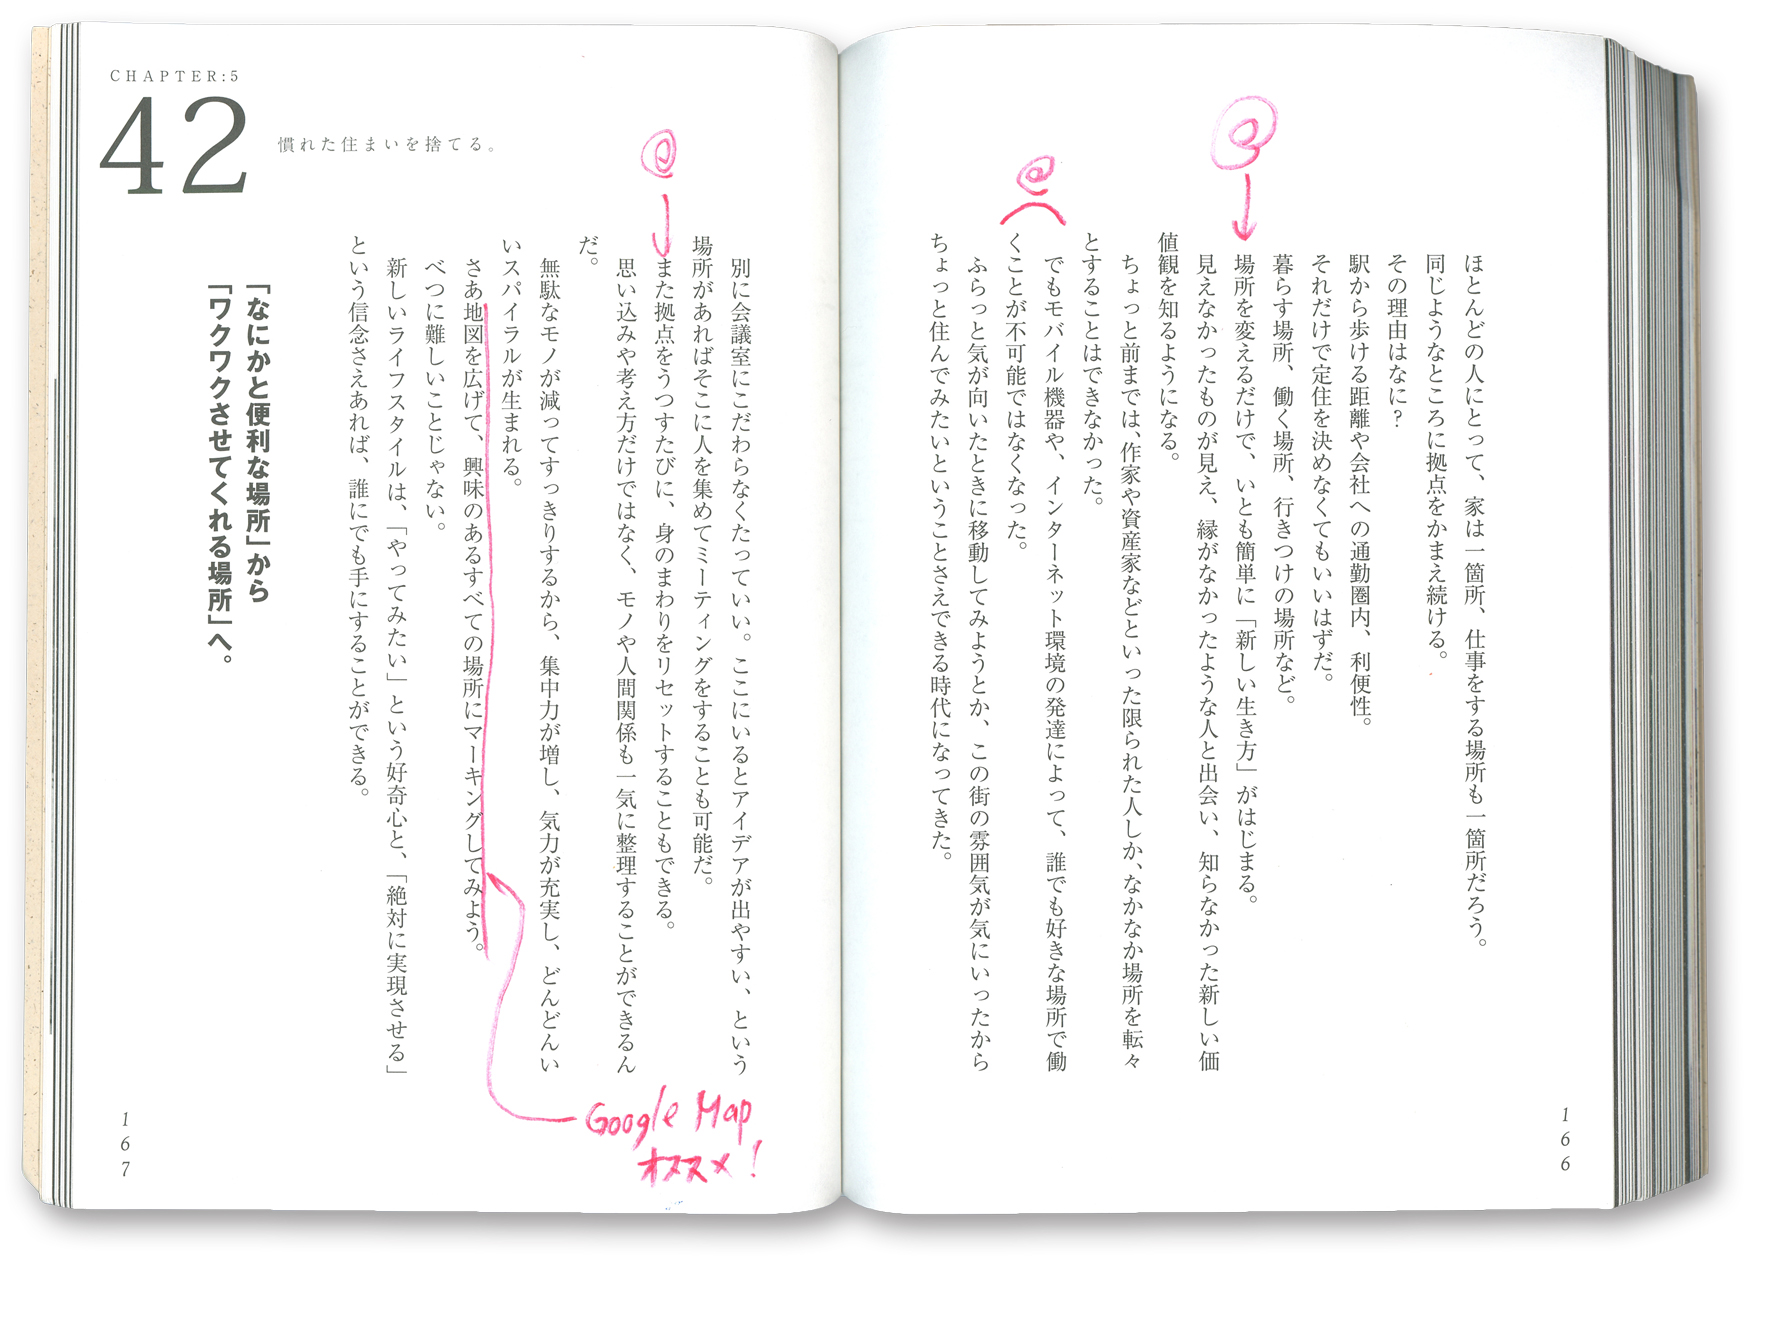 ほとんどの人にとって、家は一箇所、仕事をする場所も一箇所だろう。
同じようなところに拠点をかまえ続ける。
その理由はなに?
駅から歩ける距離や会社への通勤圏内、利便性。
それだけで定住を決めなくてもいいはずだ。
暮らす場所、働く場所、行きつけの場所など。
場所を変えるだけで、いとも簡単に「新しい生き方」がはじまる。
見えなかったものが見え、縁がなかったような人と出会い、知らなかった新しい価
値観を知るようになる。
ちょっと前までは、作家や資産家などといった限られた人しか、なかなか場所を転々
とすることはできなかった。
でもモバイル機器や、インターネット環境の発達によって、誰でも好きな場所で働
くことが不可能ではなくなった。
ふらっと気が向いたときに移動してみようとか、この街の雰囲気が気にいったから
ちょっと住んでみたいということさえできる時代になってきた。
166
CHAPTER:5
42
慣れた住まいを捨てる。
別に会議室にこだわらなくたっていい。ここにいるとアイデアが出やすい、という
場所があればそこに人を集めてミーティングをすることも可能だ。
また拠点をうつすたびに、身のまわりをリセットすることもできる。
思い込みや考え方だけではなく、モノや人間関係も一気に整理することができるん
だ。
無駄なモノが減ってすっきりするから、集中力が増し、気力が充実し、どんどんい
いスパイラルが生まれる。
さあ地図を広げて、興味のあるすべての場所にマーキングしてみよう。
べつに難しいことじゃない。
新しいライフスタイルは、「やってみたい」という好奇心と、「絶対に実現させる」
という信念さえあれば、誰にでも手にすることができる。
「なにかと便利な場所」から
「ワクワクさせてくれる場所」へ。
Google Map
オススメ!
167